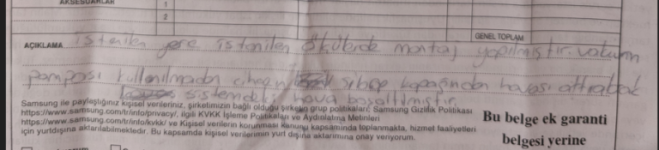 AKSESUARLAR
1
2
GENEL TOPLAM
AÇIKLAMA istenilen yere istenilen şekilde montaj yapılmıştır. vakum
pompası kullanılmadan cihazın sibop kapağından havası attırılarak
sistemdeki hava boşaltılmıştır.
Samsung ile paylaştığınız kişisel verileriniz, şirketimizin bağlı olduğu şirketin grup politikaları, Samsung Gizlilik Politikası
https://www.samsung.com/tr/info/privacy/, ilgili KVKK İşleme Politikaları ve Aydınlatma Metinleri
https://www.samsung.com/tr/info/kvkk/ ve Kişisel verilerin korunması kanunu kapsamında toplanmakta, hizmet faaliyetleri
için yurtdışına aktarılabilmektedir. Bu kapsamda kişisel verilerimin yurt dışına aktarımına onay veriyorum.
Bu belge ek garanti
belgesi yerine